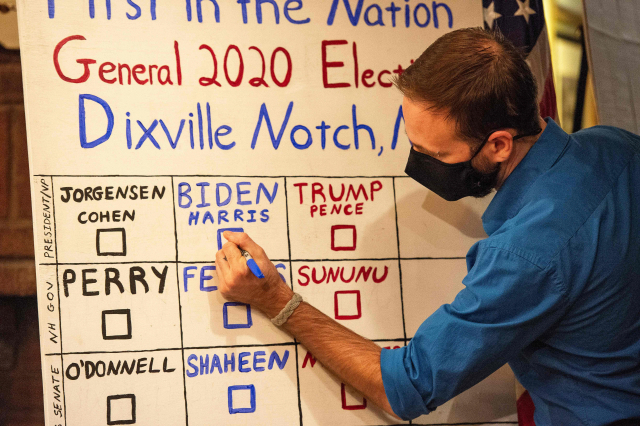 First in the Nation
General 2020 Electi
Dixville Notch, N
PRESIDENT/VP
JORGENSEN
COHEN
BIDEN
HARRIS
TRUMP
PENCE
NH GOV
PERRY
FE
SUNUNU
SENATE
O'DONNELL
SHAHEEN